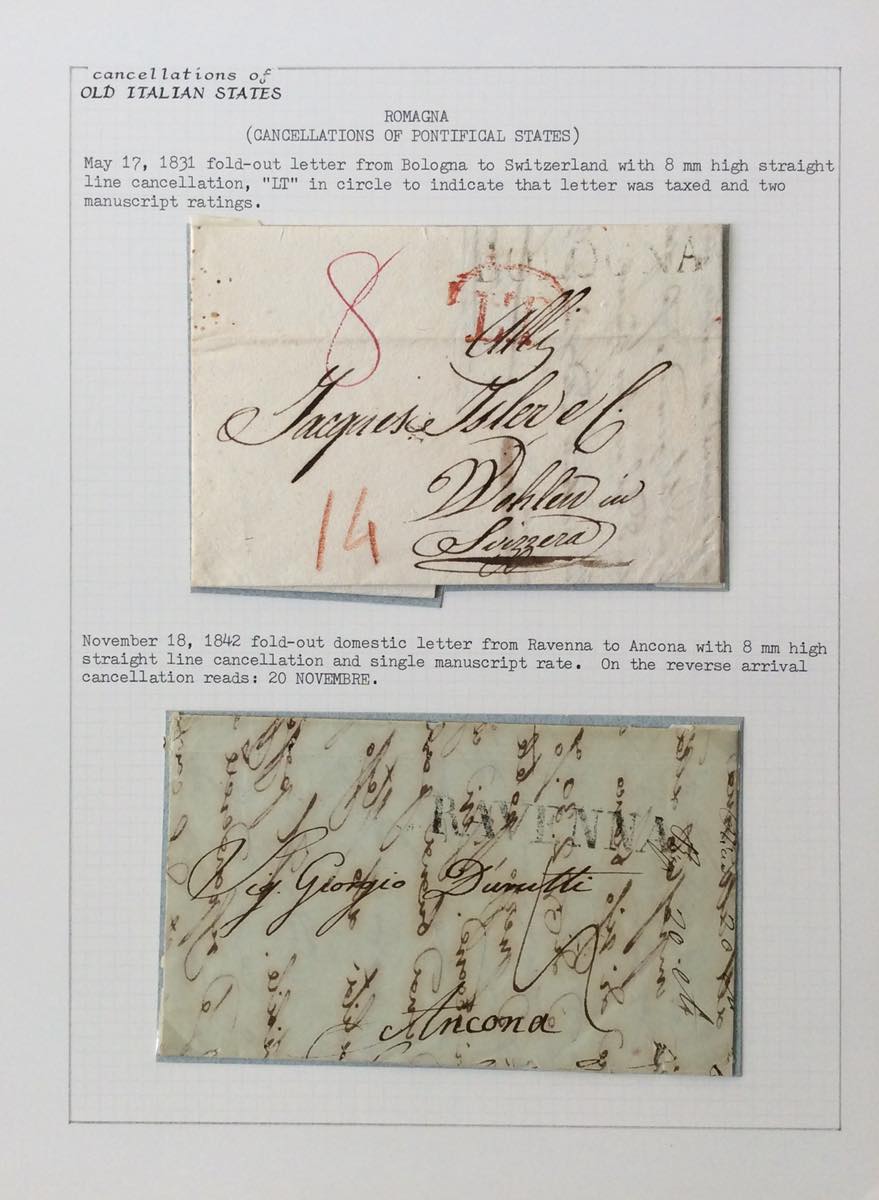 cancellations of
OLD ITALIAN STATES
ROMAGNA
(CANCELLATIONS OF PONTIFICAL STATES)
May 17, 1831 fold-out letter from Bologna to Switzerland with 8 mm high straight
line cancellation, "LT" in circle to indicate that letter was taxed and two
manuscript ratings.
BOLOGNA
8
LT
Alli
Jacques Isler e C.
Wohlen in
Svizzera
14
November 18, 1842 fold-out domestic letter from Ravenna to Ancona with 8 mm high
straight line cancellation and single manuscript rate. On the reverse arrival
cancellation reads: 20 NOVEMBRE.
RAVENNA
Sig. Giorgio
Ancona